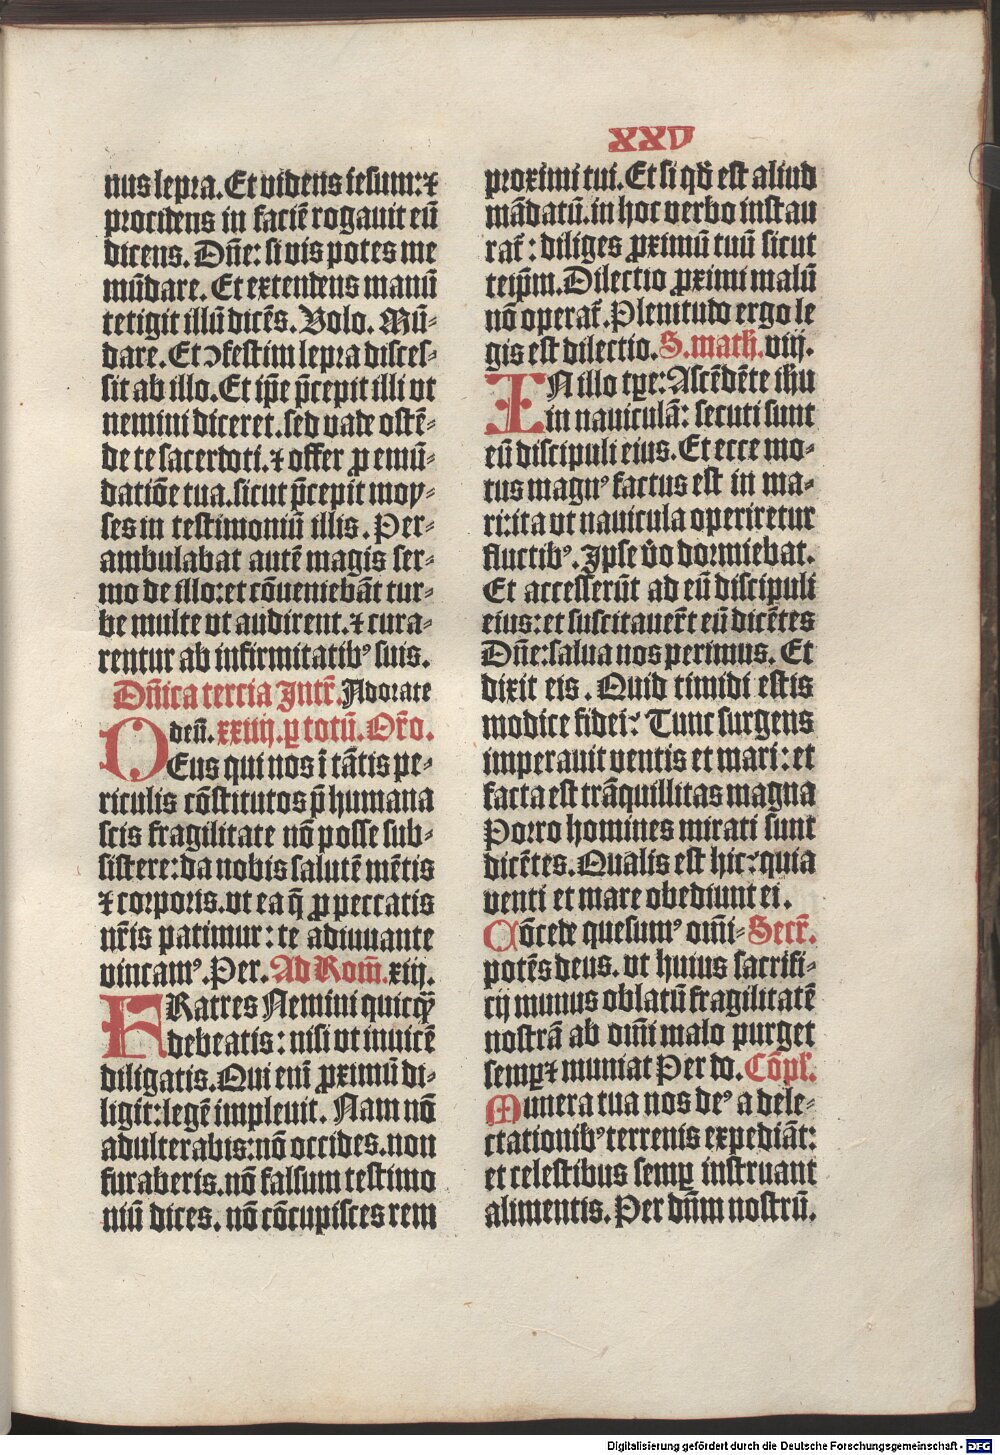 XXV
nus lepra. Et videns iesum: ⁊
procidens in faciē rogauit eū
dicens. Dñe: si vis potes me
mūdare. Et extendens manū
tetigit illū dicēs. Volo. Mū-
dare. Et ↄfestim lepra disces-
sit ab illo. Et ip̄e p̄cepit illi vt
nemini diceret. sed vade ostē-
de te sacerdoti. ⁊ offer ꝓ emū-
datiōe tua. sicut p̄cepit moy-
ses in testimoniū illis. Per-
ambulabat autē magis ser-
mo de illo: et cōueniebāt tur-
be multe vt audirent. ⁊ cura-
rentur ab infirmitatibꝰ suis.
Dñica tercia Intr̄. Adorate
deū. xxiiij. ꝑ totū. Or̄o.
DEus qui nos ī tātis pe-
riculis cōstitutos p̄ humana
scis fragilitate nō posse sub-
sistere: da nobis salutē mētis
⁊ corporis. vt ea q̄ ꝓ peccatis
nr̄is patimur: te adiuuante
vincamꝰ. Per. Ad Rom̄. xiij.
FRatres Nemini quicq̄
debeatis: nisi vt inuicē
diligatis. Qui eni ꝓximū di-
ligit: legē impleuit. Nam nō
adulterabis: nō occides. non
furaberis. nō falsum testimo
niū dices. nō cōcupisces rem
proximi tui. Et si qđ est aliud
mādatū. in hoc verbo instau
rat̄: diliges ꝓximū tuū sicut
teip̄m. Dilectio ꝓximi malū
nō operat̄. Plenitudo ergo le
gis est dilectio. S. math. viij.
IN illo tꝑe: Ascēdēte ih̄u
in nauiculā: secuti sunt
eū discipuli eius. Et ecce mo-
tus magnꝰ factus est in ma-
ri: ita vt nauicula operiretur
fluctibꝰ. Ipse v̄o dormiebat.
Et accesserūt ad eū discipuli
eius: et suscitauer̄t eū dicētes
Dñe: salua nos perimus. Et
dixit eis. Quid timidi estis
modice fidei? Tunc surgens
imperauit ventis et mari: et
facta est trāquillitas magna
Porro homines mirati sunt
dicētes. Qualis est hic: quia
venti et mare obediunt ei.
Cōcede quesumꝰ om̄i- Secr̄.
potēs deus. vt huius sacrifi-
cij munus oblatū fragilitatē
nostrā ab om̄i malo purget
sempꝑ ⁊ muniat Per do. Cōpl̄.
Munera tua nos deꝰ a dele-
ctationibꝰ terrenis expediāt:
et celestibus sempꝑ instruant
alimentis. Per dn̄m nostrū.
Digitalisierung gefördert durch die Deutsche Forschungsgemeinschaft - DFG